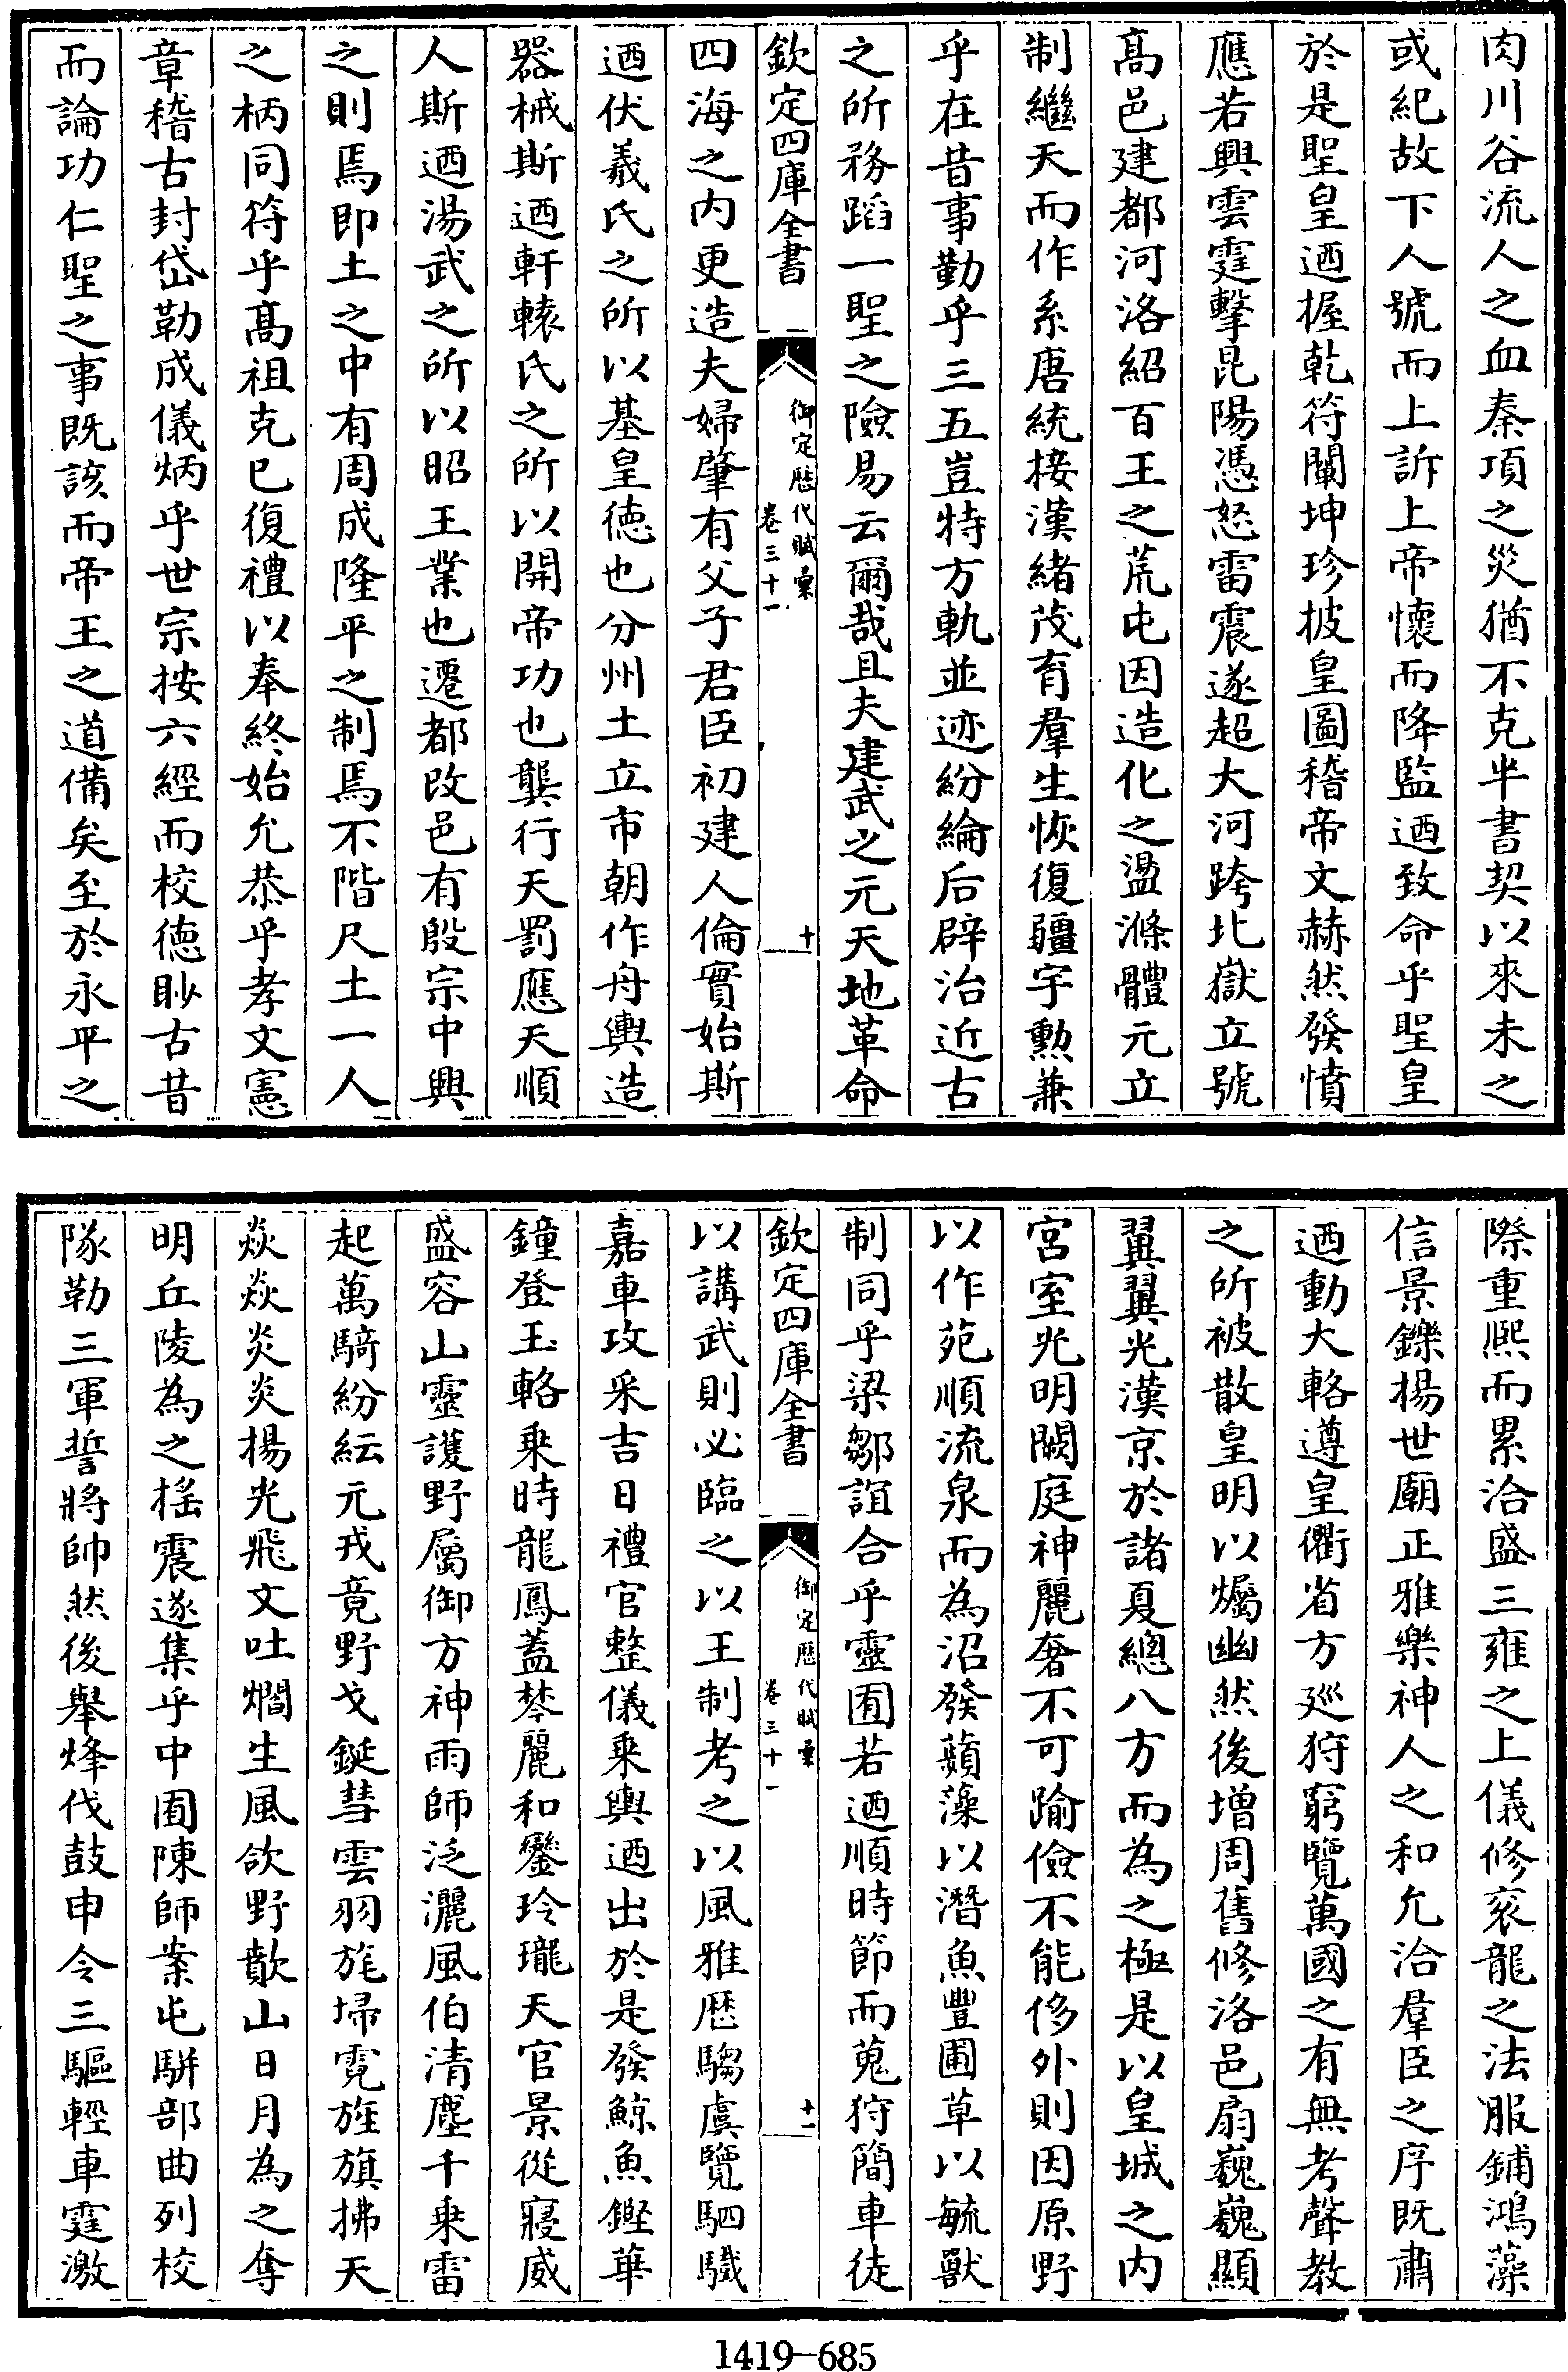 肉川谷流人之血秦項之災猶不克半書契以來未之
或紀故下人號而上訴上帝懷而降監迺致命乎聖皇
於是聖皇迺握乾符闡坤珍披皇圖稽帝文赫然發憤
應若興雲霆擊昆陽憑怒雷震遂超大河跨北嶽立號
髙邑建都河洛紹百王之荒屯因造化之盪滌體元立
制繼天而作系唐統接漢緒茂育羣生恢復疆宇勲兼
乎在昔事勤乎三五豈特方軌並迹紛綸后辟治近古
之所務蹈一聖之險易云爾哉且夫建武之元天地革命
欽定四庫全書
御定歴代賦彚
卷三十一
十
四海之内更造夫婦肇有父子君臣初建人倫實始斯
迺伏羲氏之所以基皇徳也分州土立市朝作舟輿造
器械斯迺軒轅氏之所以開帝功也龔行天罰應天順
人斯迺湯武之所以昭王業也遷都改邑有殷宗中興
之則焉即土之中有周成隆平之制焉不階尺土一人
之柄同符乎髙祖克己復禮以奉終始允恭乎孝文憲
章稽古封岱勒成儀炳乎世宗按六經而校徳眇古昔
而論功仁聖之事既該而帝王之道備矣至於永平之
際重熙而累洽盛三雍之上儀修衮龍之法服鋪鴻藻
信景鑠揚世廟正雅樂神人之和允洽羣臣之序既肅
迺動大輅遵皇衢省方廵狩窮覽萬國之有無考聲教
之所被散皇明以爥幽然後增周舊修洛邑扇巍巍顯
翼翼光漢京於諸夏總八方而為之極是以皇城之内
宮室光明闕庭神麗奢不可踰儉不能侈外則因原野
以作苑順流泉而為沼發蘋藻以潛魚豐圃草以毓獸
制同乎梁鄒誼合乎靈囿若迺順時節而蒐狩簡車徒
欽定四庫全書
御定歴代賦彚
卷三十一
十一
以講武則必臨之以王制考之以風雅歴騶虞覽駟驖
嘉車攻采吉日禮官整儀乗輿迺出於是發鯨魚鏗華
鐘登玉輅乗時龍鳳蓋棽麗和鑾玲瓏天官景從寢威
盛容山靈護野屬御方神雨師泛灑風伯清塵千乗雷
起萬騎紛紜元戎竟野戈鋋彗雲羽旄埽霓旌旗拂天
焱焱炎炎揚光飛文吐爓生風欱野歕山日月為之奪
明丘陵為之揺震遂集乎中囿陳師案屯駢部曲列校
隊勒三軍誓將帥然後舉烽伐鼓申令三驅輕車霆激
1419—685